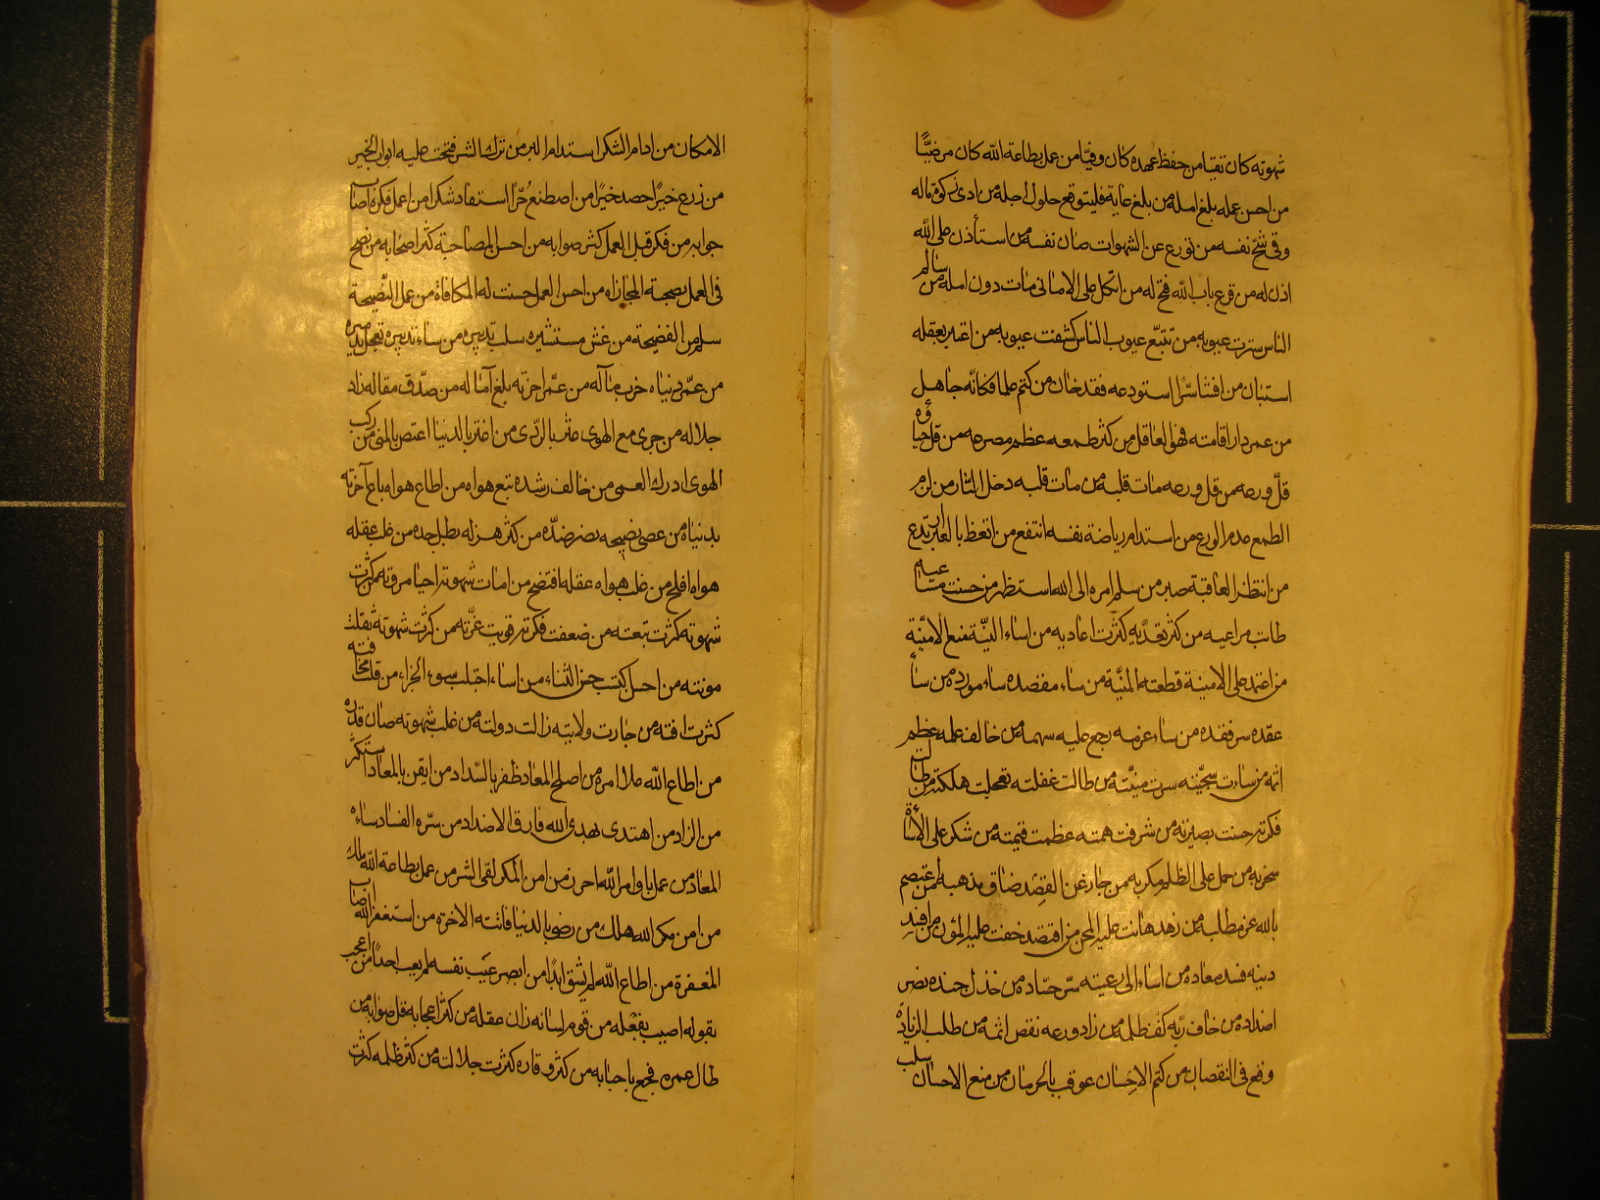 شهوته كان تقيا من حفظ عهده كان وفيّا من عمل بطاعة الله كان مرضيّا
من احسن عمله بلغ امله من بلغ غاية فليتوقع حلول اجله من ادى زكوة ماله
وقى شحّ نفسه من تورع عن الشهوات صان نفسه من استأذن على الله
اذن له من قرع باب الله فتح له من اتكل على الامانى مات دون امله من سالم
الناس سترت عيوبه من تتبّع عيوب الناس كشفت عيوبه من اعتبر بعقله
استبان من افشا سرّا استودعه فقد خان من كتم علما فكانّه جاهل
من عمر دار اقامته فهو العاقل من كثر طمعه عظم مصرعه من قل حياؤه
قلّ ورعه من قل ورعه مات قلبه من مات قلبه دخل النّار من لزم
الطمع عدم الورع من استدام رياضة نفسه انتفع من اتعظ بالعبر ارتدع
من انتظر العاقبة صبر من سلم امره الى الله استظهر من حسنت مساعيه
طابت مراعيه من كثر تعدّيه كثرت اعاديه من اساء النيّة منع الامنيّة
من اعتمد على الامينة قطعته المنيّة من ساء مقصده ساء مورده من ساء
عقده سر فقده من ساء عزمه رجع عليه سهمه من خالف علمه عظم
اثمه من ساءت سجيّته سرت منيّته من طالت غفلته تعجلت هلكته من طالت
فكرته حسنت بصيرته من شرفت همته عظمت قيمته من شكر على الاساءة
سخر به من حمل على الظلم مكر به من جار عن القصد ضاق مذهبه من يعتصم
بالله عز مطلبه من زهد هانت عليه المحن من اقتصد خفت عليه المؤن من افسد
دينه فسد معاده من اساء الى رعيته سرّ حسّاده من خذل جنده نصر
اضداده من خاف ربّه كف ظلمه من زاد ورعه نقص اثمه من طلب الزيادة
وقع فى النقصان من كتم الاحسان عوقب بالحرمان من منع الاحسان سلب
الامكان من ادام الشكر استدام البر من ترك الشر فتحت عليه ابواب الخير
من زرع خيرًا حصد خيرًا من اصطنع حرّا استفاد شكرا من اعمل فكره اصاب
جوابه من فكر قبل العمل كثر صوابه من احسن المصاحبة كثر اصحابه من نصح
فى العمل نصحته المجازاه من احسن العمل حسنت له المكافاة من عمل النّصيحة
سلم من الفضيحة من غش مستشيره سلب تدبيره من ساء تدبيره تعجل تدميره
من عمّر دنياه خرب مآله من عمّر اخرته بلغ آماله من صدّق مقاله زاد
جلاله من جرى مع الهوى عثر بالرّدى من اغتر بالدنيا اغتص بالمنى من ركب
الهوى ادرك العمى من خالف رشده تبع هواه من اطاع هواه باع آخرته
بدنياه من عصى نصيحه نصر ضدّه من كثر هزله بطل جده من غلب عقله
هواه افلح من غلب هواه عقله افتضح من امات شهوته احيا مروته من كثرت
شهوته كثرت تبعته من ضعفت فكرته قويت غرّته من كثرت شهوته ثقلت
مونته من احسن اكتسب حسن الثناء من اساء اجتلب سوء الجزاء من قلت مخافته
كثرت افته من جارت ولايته زالت دولته من غلب شهوته صان قدره
من اطاع الله علا امره من اصلح المعاد ظفر بالسّداد من ايقن بالمعاد استكثر
من الزاد من اهتدى بهدى الله فارق الاضداد من سرّه الفساد ساءه
المعاد من عمل باوامر الله احرز من امن المكر لقى الشر من عمل بطاعة الله ملك
من امن مكر الله هلك من رضى بالدنيا فاتته الاخرة من استغفر الله اصاب
المغفرة من اطاع الله لم يشق ابدًا من ابصر عيب نفسه لم يعب احدًا من اعجب
بقوله اصيب بفعله من قوم لسانه زان عقله من كثر اعجابه قل صوابه من
طال عمره فجع باحبابه من كثر وقاره كثرت جلالته من كثر ظلمه كثرت